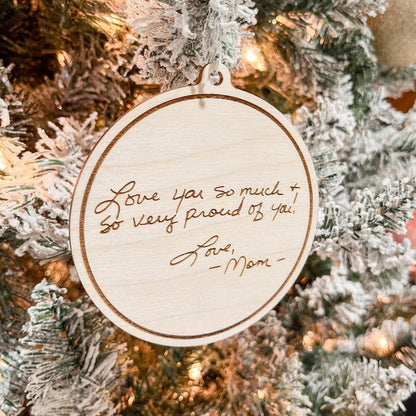 Love you so much +
so very proud of you!
Love,
- Mom -